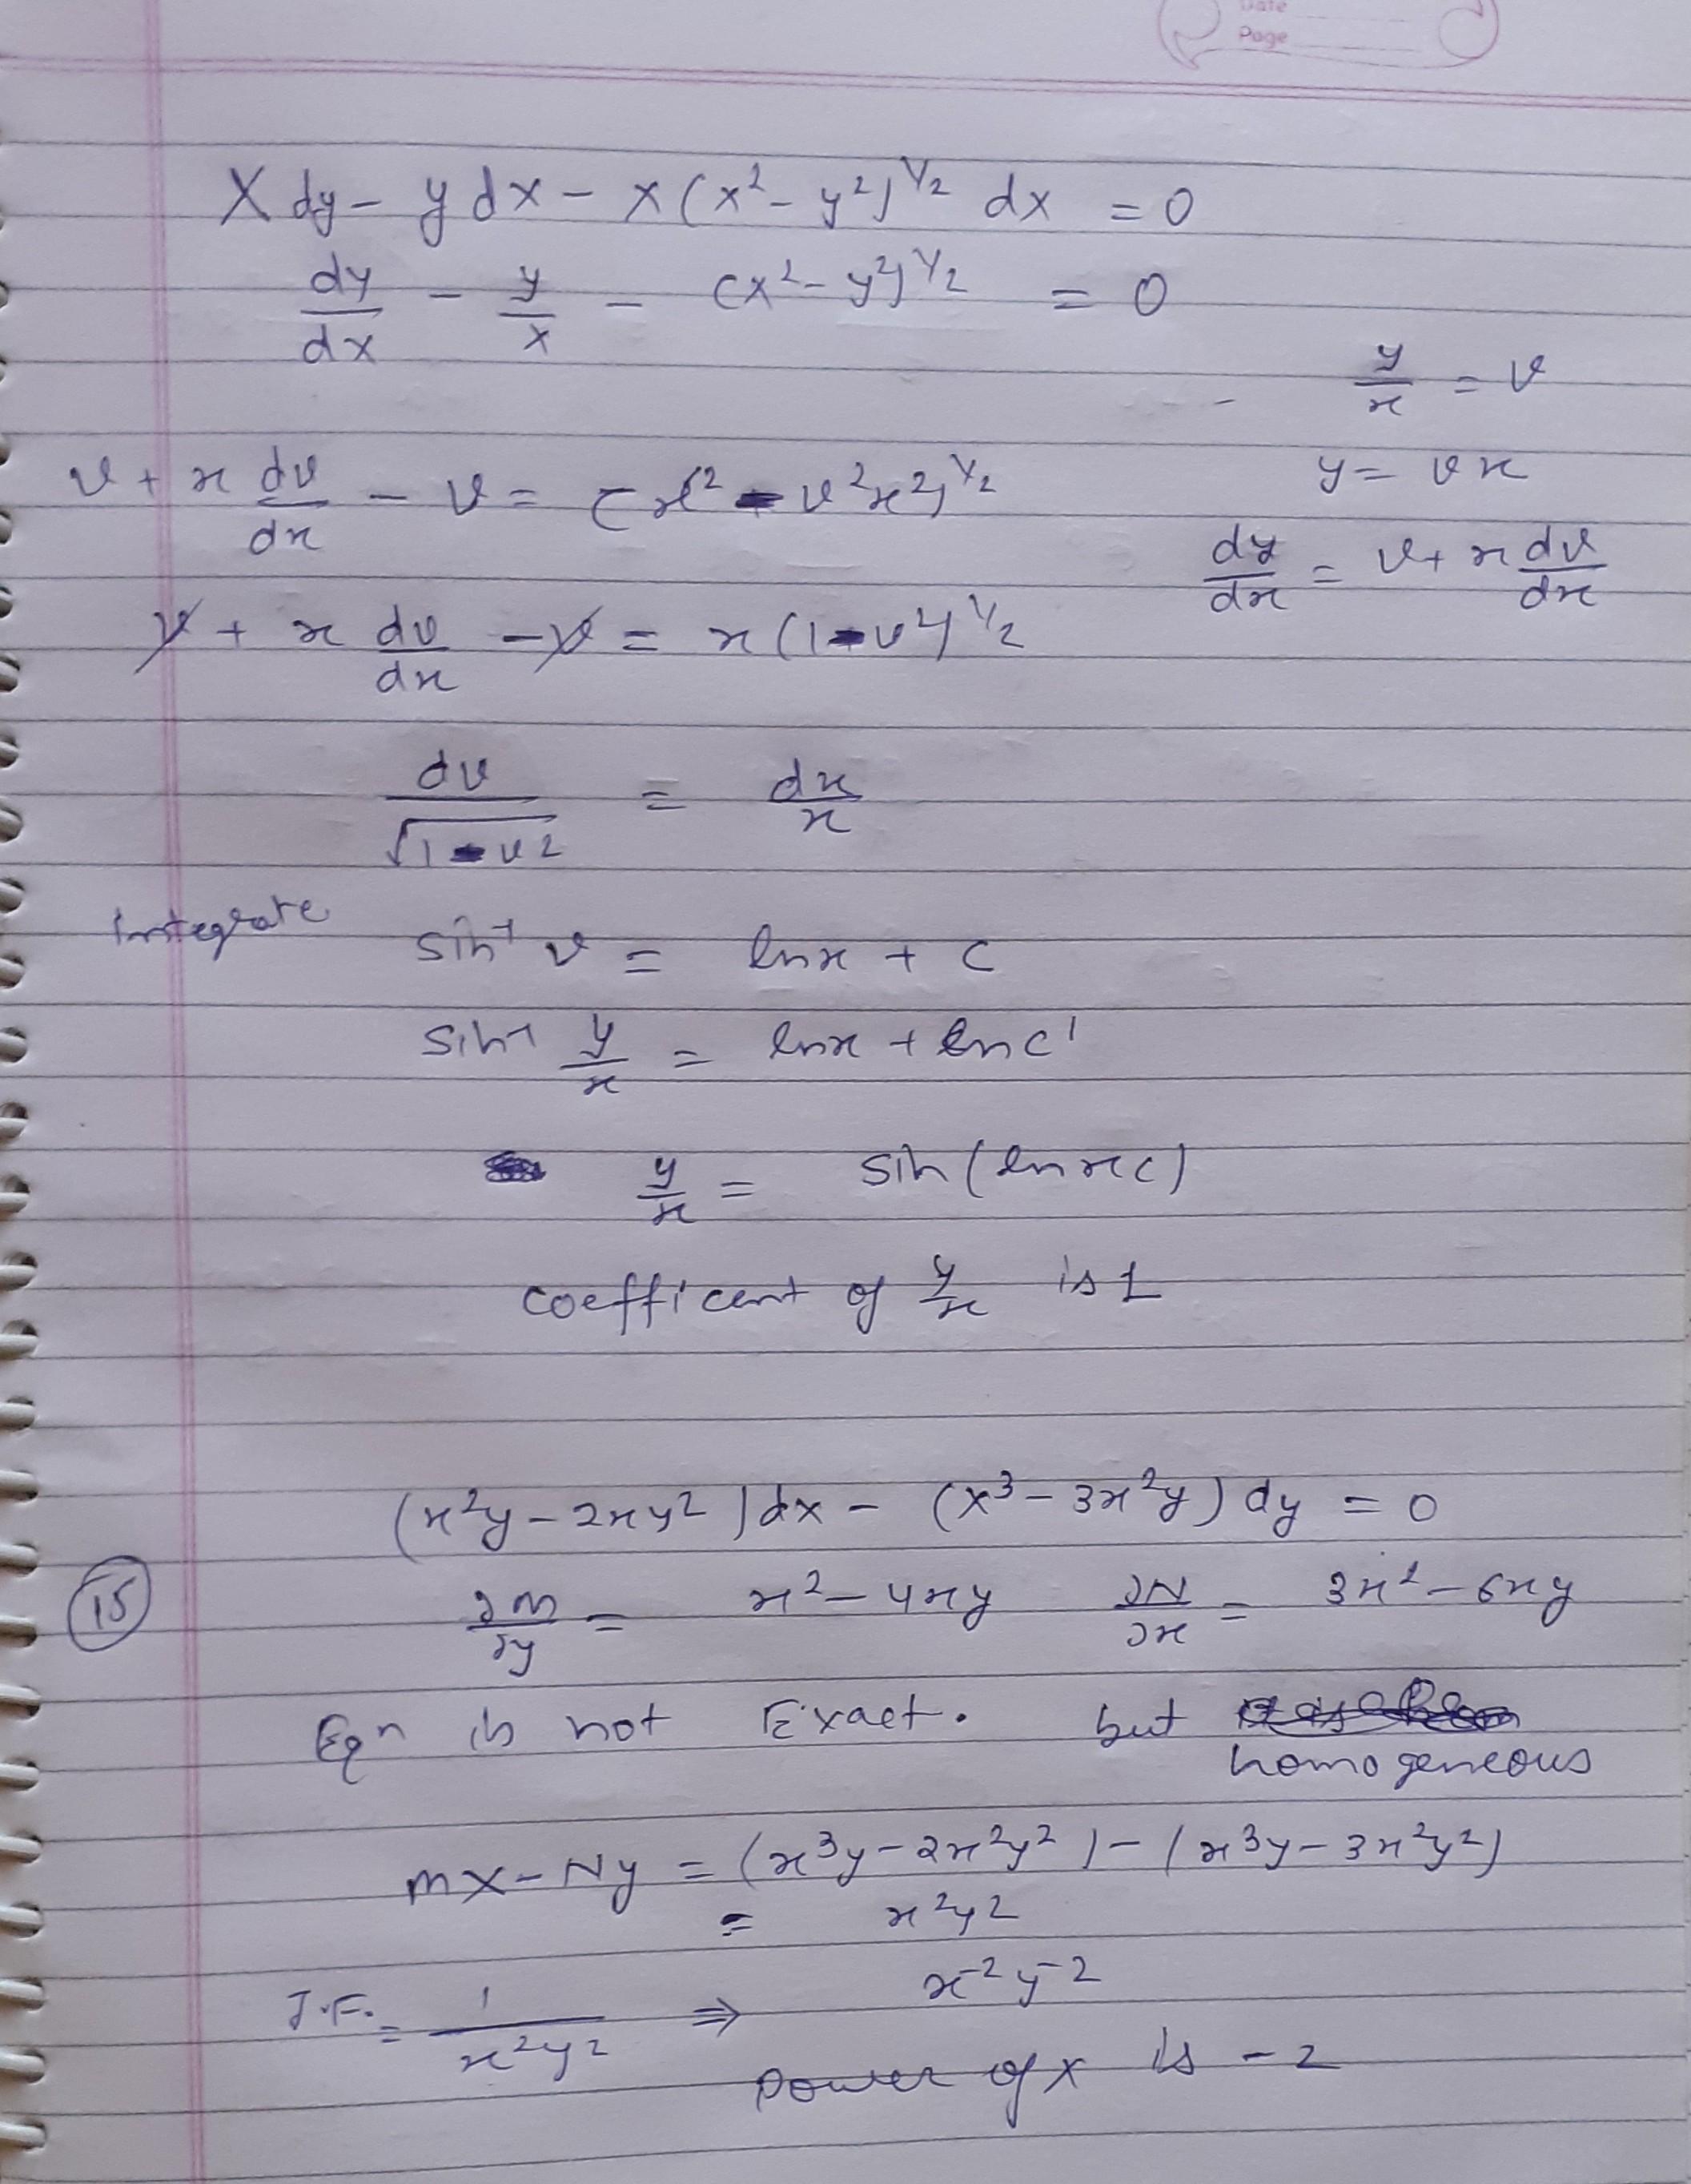 Date
Page
X dy - y dx - x (x² - y²)^1/2 dx = 0
dy/dx - y/x - (x² - y²)^1/2 = 0
y/x = v
v + x dv/dx - v = (x² - v²x²)^1/2
y = vx
dy/dx = v + x dv/dx
v + x dv/dx - v = x (1 - v²)^1/2
dv/√1-v² = dx/x
Integrate sin⁻¹ v = ln x + c
sin⁻¹ y/x = ln x + ln c'
y/x = sin (ln xc)
coefficent of y/x is 1
(x²y - 2xy²) dx - (x³ - 3x²y) dy = 0
(15) ∂m/∂y = x² - 4xy ∂N/∂x = 3x² - 6xy
Eqn is not Exact. but
homogeneous
mx - Ny = (x³y - 2x²y²) - (x³y - 3x²y²)
= x²y²
I.F. = 1/x²y² ⇒ x⁻²y⁻²
power of x is -2